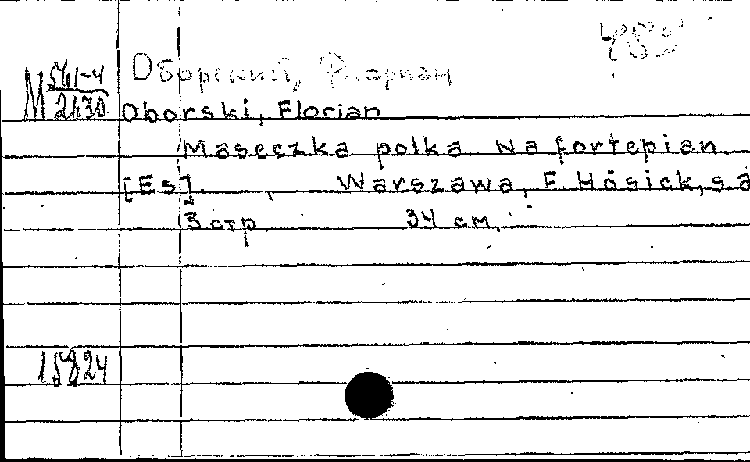 Оборский, Флориан
М 561-4
2630
Oborski, Florian
Maseczka polka na fortepian.
[Es]. , Warszawa, F. Hösick, s.a
3 стр. 34 см.
15824